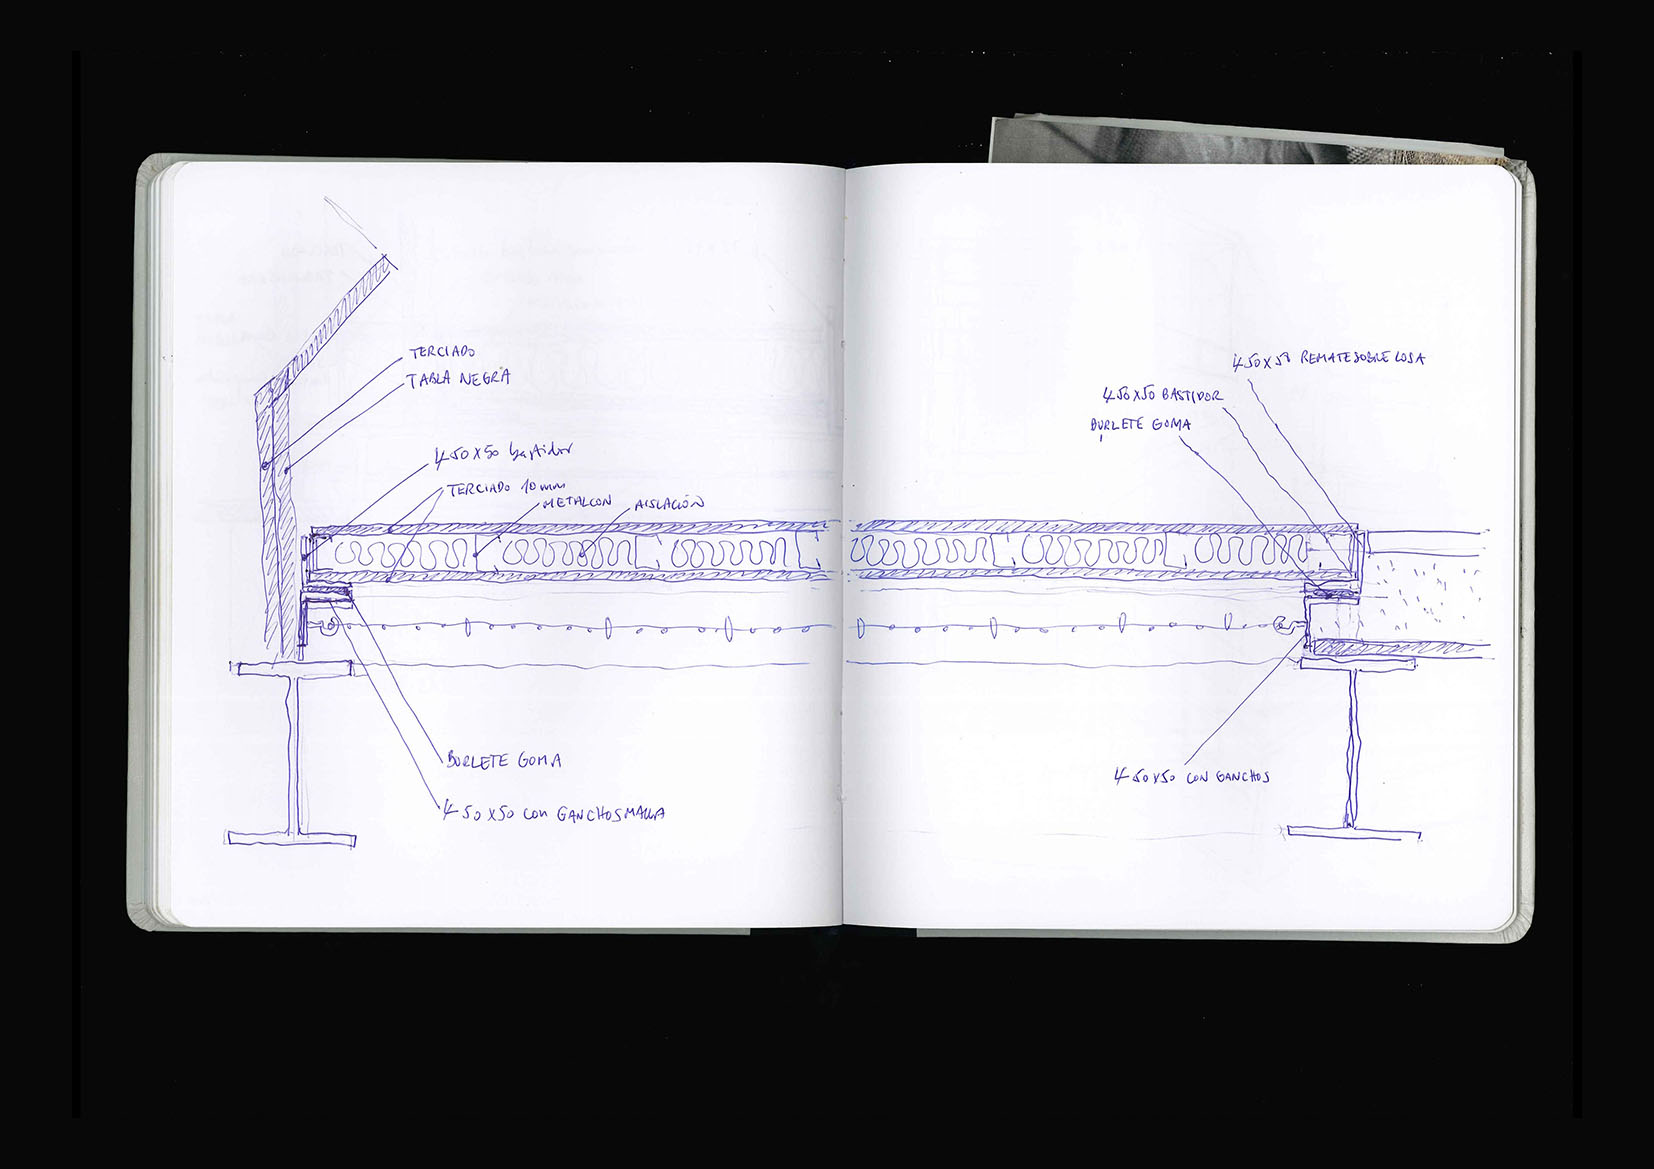 TERCIADO
TABLA NEGRA
L 50X50 bastidor
TERCIADO 10mm
METALCON
AISLACIÓN
BURLETE GOMA
L 50X50 CON GANCHOS MALLA
L 50X50 REMATE SOBRE LOSA
L 50X50 BASTIDOR
BURLETE GOMA
L 50X50 CON GANCHOS